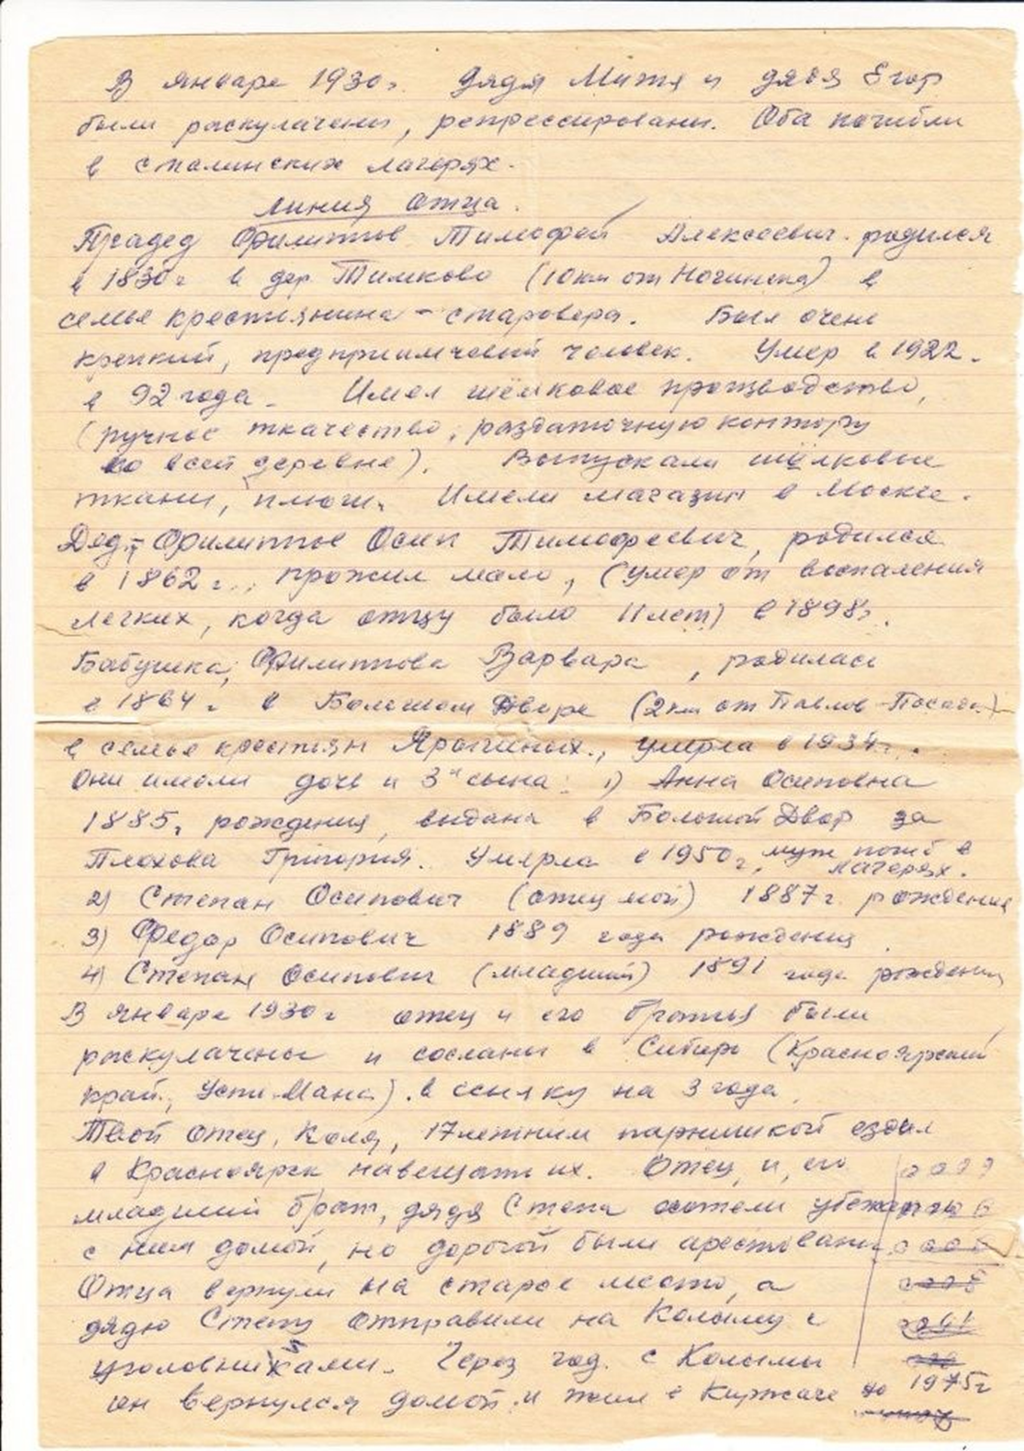 В январе 1930г. дядя Митя и дядя Егор
были раскулачены, репрессированы. Оба погибли
в сталинских лагерях.
Линия отца.
Прадед Филиппов Тимофей Алексеевич родился
в 1830г в дер. Тимково (10км от Ногинска) в
семье крестьянина - старовера. Был очень
крепкий, предприимчивый человек. Умер в 1922.
в 92 года. Имел шёлковое производство,
(ручное ткачество, раздаточную контору
по всей деревне). Выпускали шёлковые
ткани, плюш. Имели магазин в Москве.
Дед - Филиппов Осип Тимофеевич, родился
в 1862г., прожил мало, (умер от воспаления
легких, когда отцу было 11 лет) в 1898г.
Бабушка, Филиппова Варвара, родилась
в 1864г. в Большом Дворе (2км от Павлов-Посада)
в семье крестьян, умерла в 1934г.
Они имели дочь и 3х сына: 1) Анна Осиповна
1885г рождения, выдана в Большой Двор за
Плохова Григория. Умерла в 1950г, муж погиб в
лагерях.
2) Степан Осипович (отец мой) 1887г. рождения
3) Федор Осипович 1889 года рождения
4) Степан Осипович (младший) 1891 года рождения
В январе 1930г отец и его братья были
раскулачены и сосланы в Сибирь (Красноярский
край, Усть-Мана). в ссылку на 3 года.
Твой отец, Коля, 17летним парнишкой ездил
в Красноярск навещать их. Отец, и, его
младший брат, дядя Степа хотели убежать
с ним домой, но дорогой были арестованы.
Отца вернули на старое место, а
дядю Степу отправили на Колыму с
уголовниками. Через год с Колымы
он вернулся домой и жил в Киржаче до 1975г